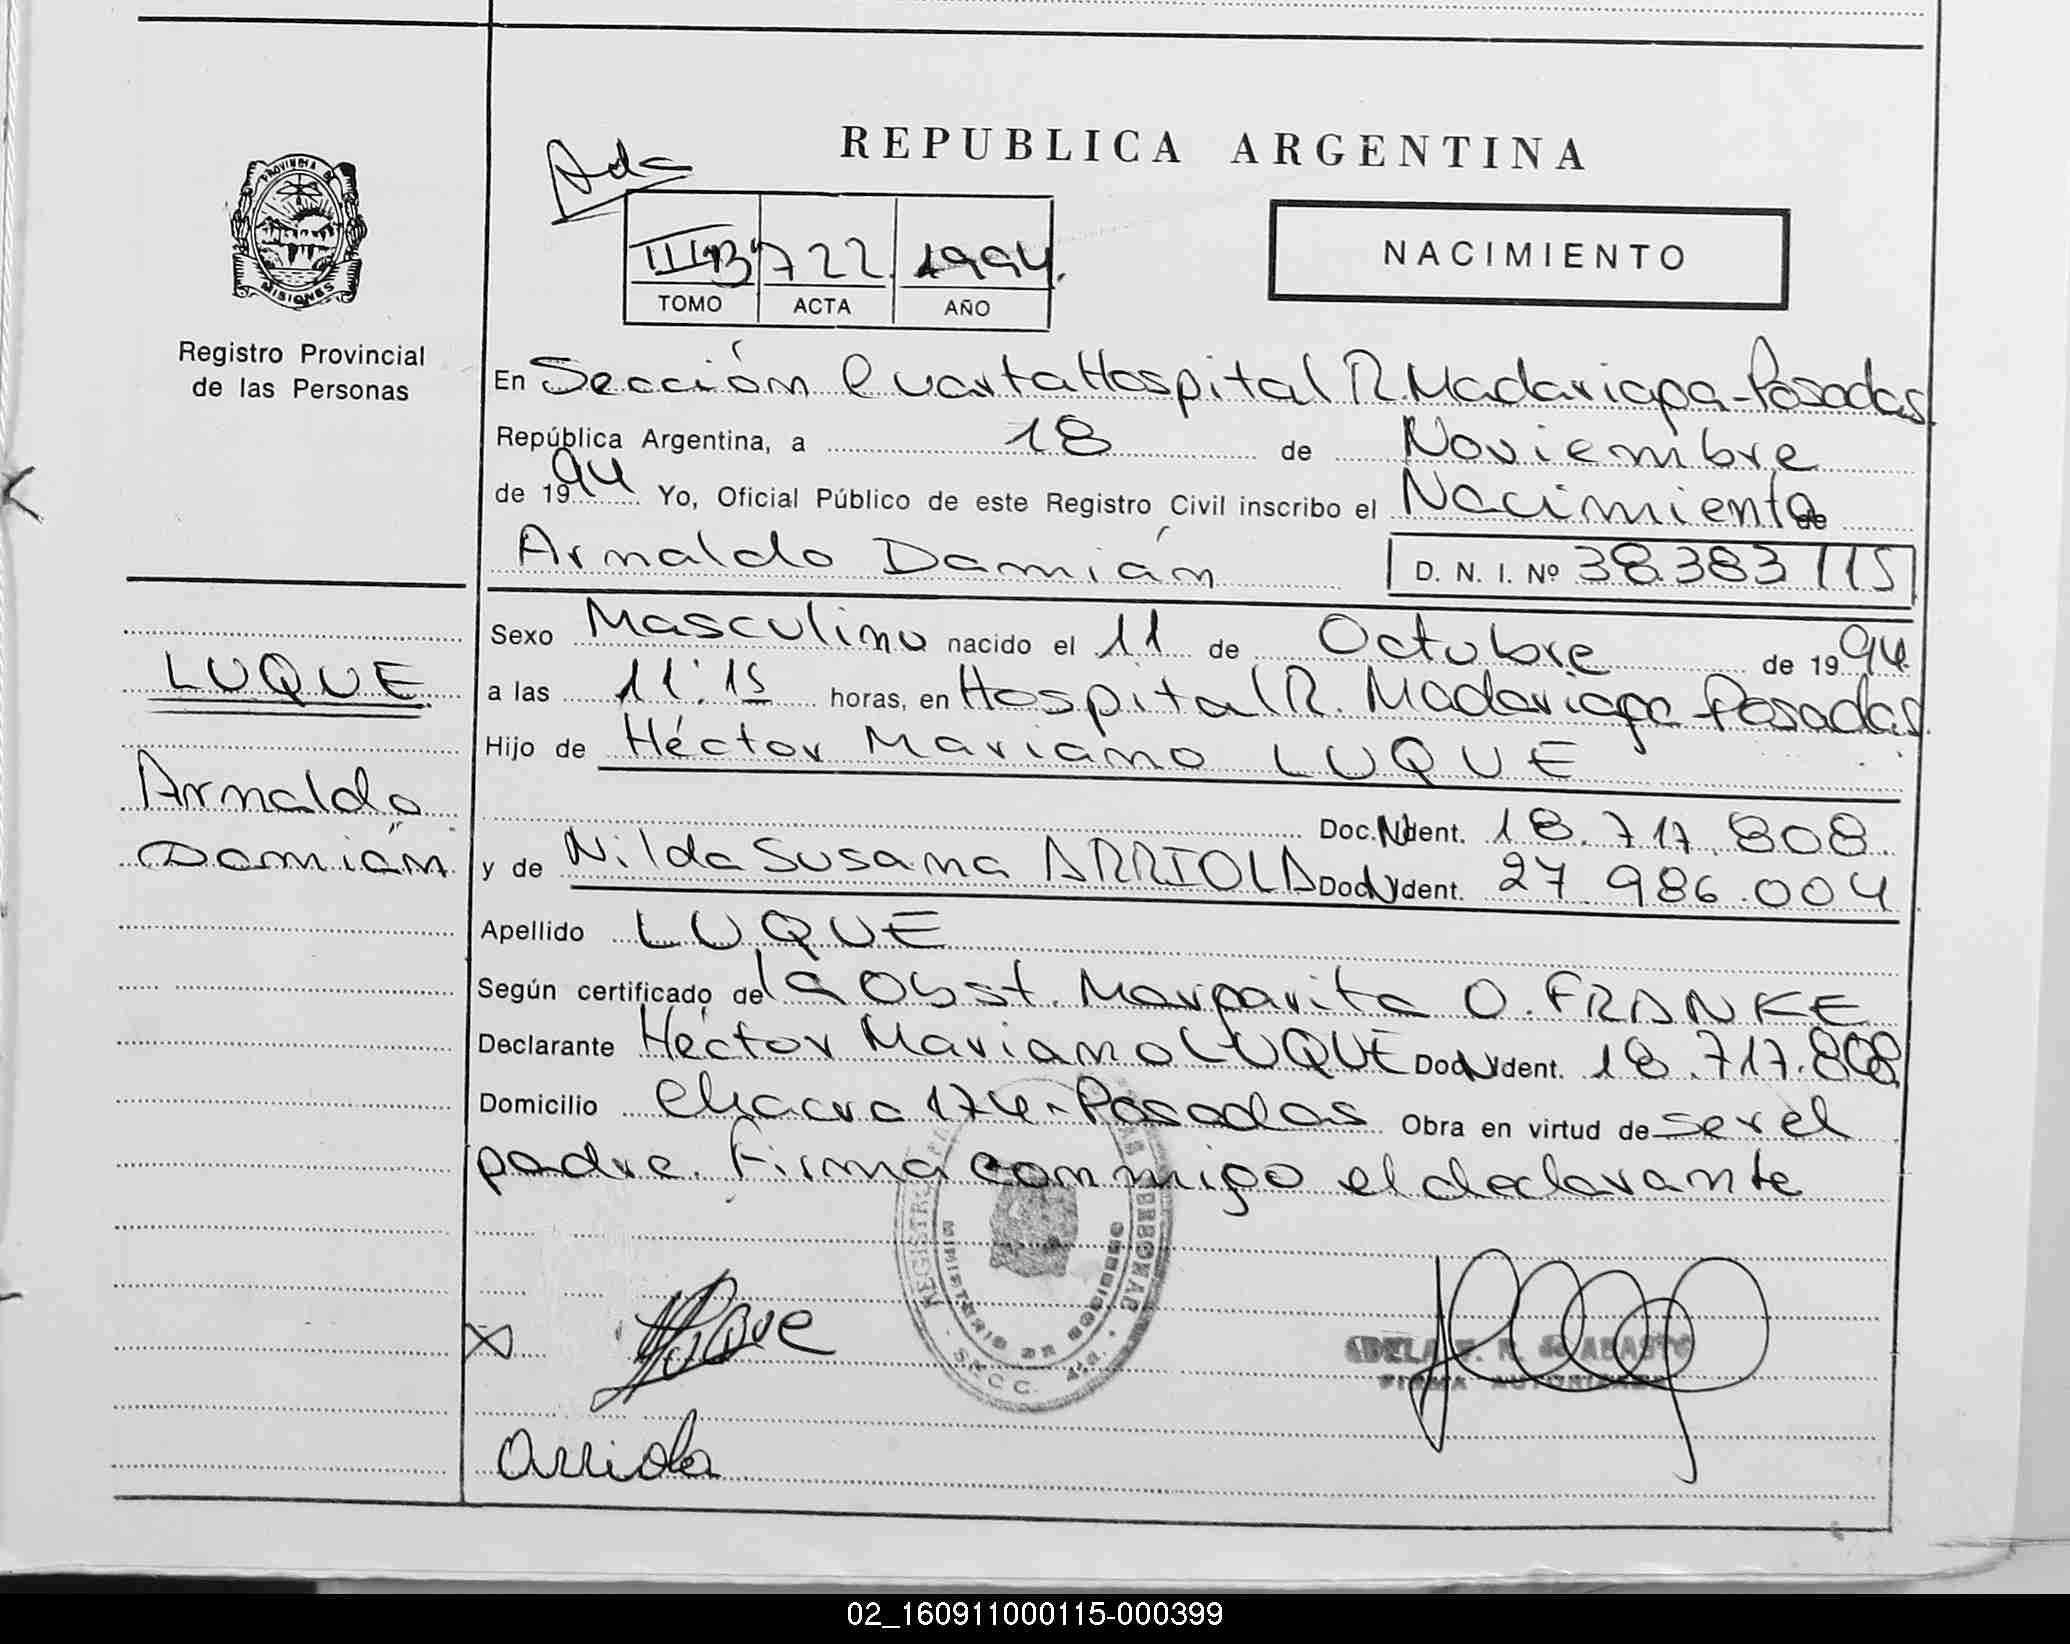 REPUBLICA ARGENTINA
PROVINCIA DE
MISIONES
Registro Provincial
de las Personas
Ada
III "B" 722. 1994.
TOMO ACTA AÑO
NACIMIENTO
En Sección Cuarta Hospital R. Madariaga-Posadas
República Argentina, a 18 de Noviembre
de 1994 Yo, Oficial Público de este Registro Civil inscribo el Nacimiento de
Arnaldo Damián D. N. I. Nº 38.383 115
LUQUE
Arnaldo
Damián
Sexo Masculino nacido el 11 de Octubre de 1994.
a las 11:15 horas, en Hospital R. Madariaga-Posadas
Hijo de Héctor Mariano LUQUE
Doc. Ident. 18.717.808.
y de Nilda Susana ARRIOLA Doc. Ident. 27.986.004
Apellido LUQUE
Según certificado de la Obst. Margarita O. FRANKE
Declarante Héctor Mariano LUQUE Doc. Ident. 18.717.808
Domicilio Chacra 174-Posadas Obra en virtud de ser el
padre. Firma conmigo el declarante
MINISTERIO DE GOBIERNO
Luque
Arriola
02_160911000115-000399